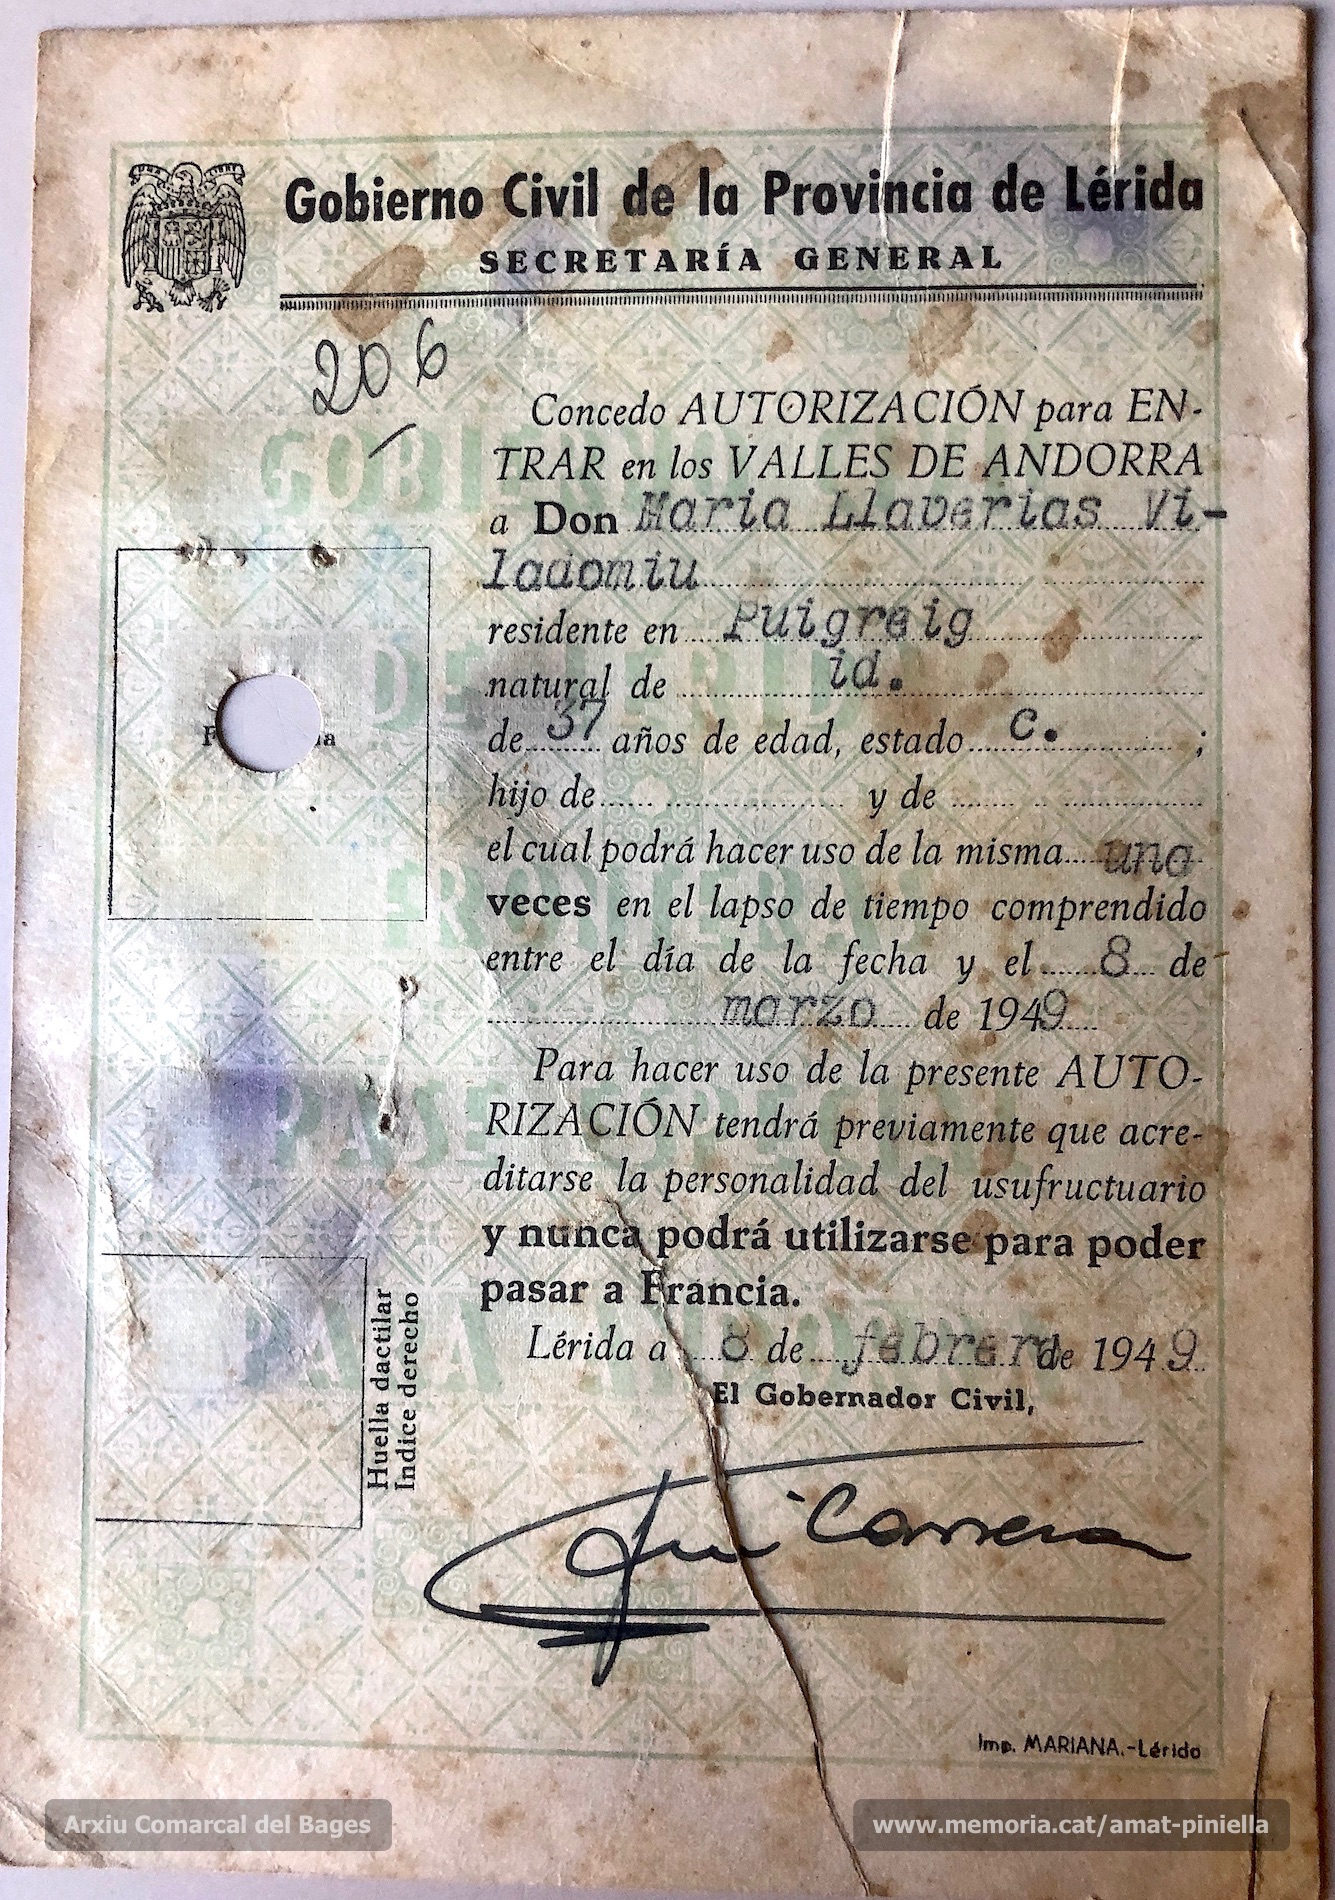 Gobierno Civil de la Provincia de Lérida
SECRETARÍA GENERAL
206
Concedo AUTORIZACIÓN para EN-
TRAR en los VALLES DE ANDORRA
a Don Maria Llaverias Vi-
ladomiu
residente en Puigreig
natural de id.
de 37 años de edad, estado c. ;
hijo de y de
el cual podrá hacer uso de la misma una
veces en el lapso de tiempo comprendido
entre el día de la fecha y el 8 de
marzo de 1949
Para hacer uso de la presente AUTO-
RIZACIÓN tendrá previamente que acre-
ditarse la personalidad del usufructuario
y nunca podrá utilizarse para poder
pasar a Francia.
Lérida a 8 de febrero de 1949
El Gobernador Civil,
Carrera
Huella dactilar
Indice derecho
GOBIERNO CIVIL
DE LERIDA
FRONTERAS
PASE ESPECIAL
PARA ANDORRA
Imp. MARIANA.-Lérida
Arxiu Comarcal del Bages
www.memoria.cat/amat-piniella